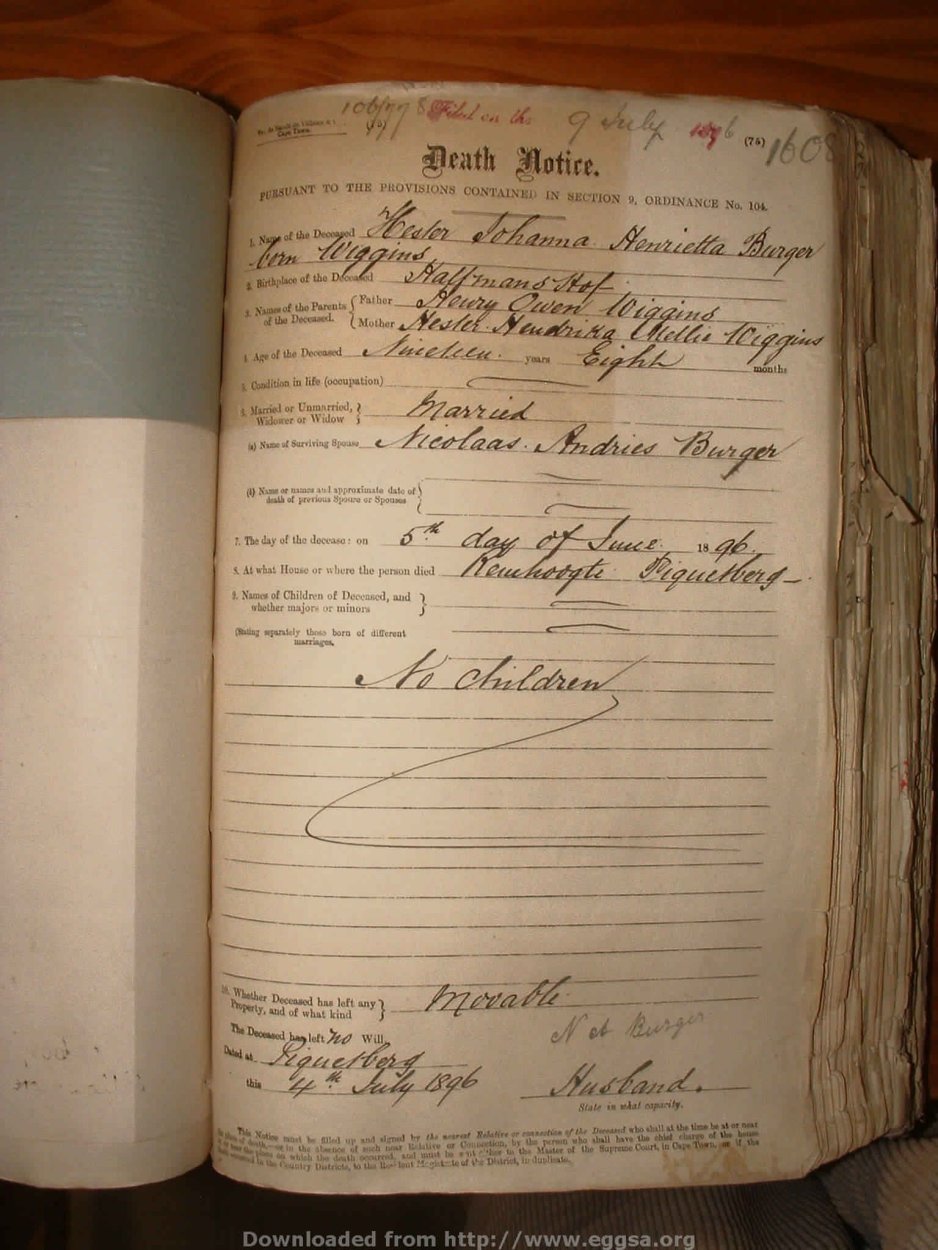 106/778 Filed on the 9 July 1896 1608
Cape Town. (75) (75)
Death Notice.
PURSUANT TO THE PROVISIONS CONTAINED IN SECTION 9, ORDINANCE No. 104.
1. Name of the Deceased Hester Johanna Henrietta Burger
born Wiggins
2. Birthplace of the Deceased Halfmans Hof
3. Names of the Parents of the Deceased. Father Henry Owen Wiggins
Mother Hester Hendrika Wiggins
4. Age of the Deceased Nineteen years Eight months
5. Condition in life (occupation)
6. Married or Unmarried, Widower or Widow Married
(a) Name of Surviving Spouse Nicolaas Andries Burger
(b) Name or names and approximate date of
death of previous Spouse or Spouses
7. The day of the decease: on 5th day of June 1896.
8. At what House or where the person died Piquetberg
9. Names of Children of Deceased, and
whether majors or minors
(Stating separately those born of different
marriages.
No Children
10. Whether Deceased has left any
Property, and of what kind Movable
The Deceased has left no Will. N A Burger
Dated at Piquetberg
this 4th July 1896 Husband.
State in what capacity.
This Notice must be filled up and signed by the nearest Relative or connection of the Deceased who shall at the time be at or near
the place of death,—or in the absence of such near Relative or Connection, by the person who shall have the chief charge of the house
or the place on which the death occurred, and must be sent either to the Master of the Supreme Court, in Cape Town, or if the
death occurred in the Country Districts, to the Resident Magistrate of the District, in duplicate.
Downloaded from http://www.eggsa.org